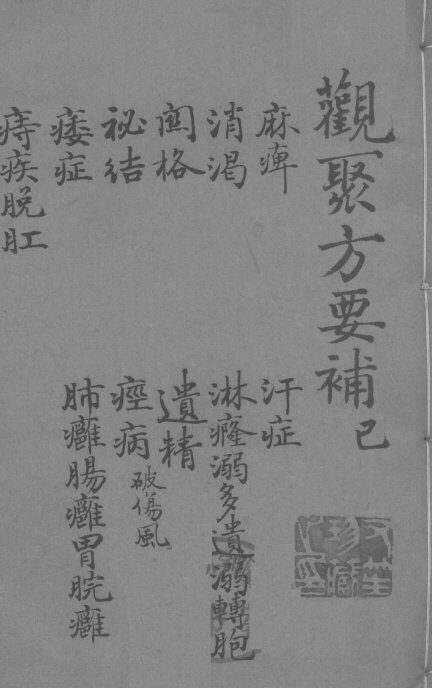 觀聚方要補 己
麻痺
汗症
消渴
淋癃溺多遺溺轉胞
関格
遺精
祕結
痙病 破傷風
痿症
肺癰腸癰胃脘癰
痔疾脫肛